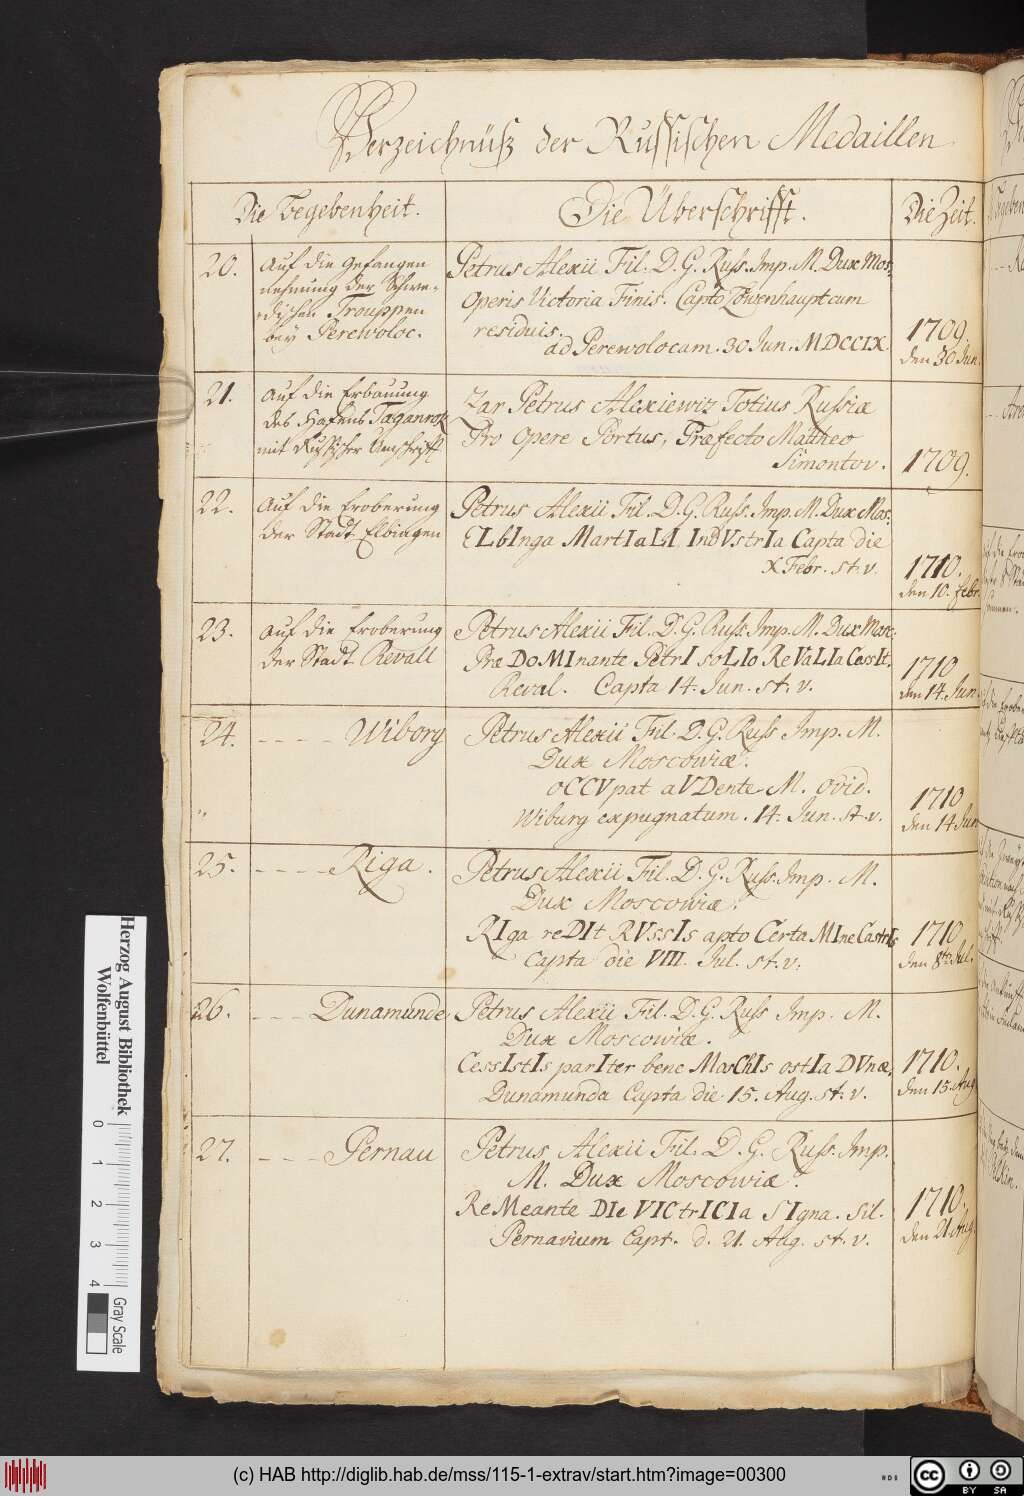 Verzeichnüß der Russischen Medaillen
Die Begebenheit.
Die Überschrifft.
Die Zeit.
20.
Auf die Gefangen
nehmung der Schwe-
dischen Trouppen
bey Perewoloc.
Petrus Alexii Fil. D. G. Russ. Imp. M. Dux Mos.
Operis Victoria Finis. Capto Löwenhaupt cum
residuis.
ad Perewolocam. 30 Jun. MDCCIX.
1709.
den 30 Jun.
21.
Auf die Erbauung
des Hafens Taganrok
mit Russischer Umschrifft
Zar Petrus Alexiewiz Totius Russiæ
Pro Opere Portus, Præfecto Mattheo
Simontov.
1709.
22.
Auf die Eroberung
der Stadt Elbingen
Petrus Alexii Fil. D. G. Russ. Imp. M. Dux Mos.
ELbInga MartIaLI IndVstrIa Capta die
X Febr. st. v.
1710.
den 10. Febr.
23.
Auf die Eroberung
der Stadt Revall
Petrus Alexii Fil. D. G. Russ. Imp. M. Dux Mosc.
Præ DoMInante PetrI soLIo ReVaLIa CessIt.
Reval. Capta 14. Jun. st. v.
1710
den 14. Jun.
24.
- - - - Wiborg
Petrus Alexii Fil. D. G. Russ Imp. M.
Dux Moscowiæ.
oCCVpat aVDente M. Ovid.
Wiburg expugnatum. 14. Jun. st. v.
1710
den 14 Jun
25.
- - - - Riga.
Petrus Alexii Fil. D. G. Russ. Imp. M.
Dux Moscowiæ.
RIga reDIt RVssIs apto Certa MIne CastrIs
Capta die VIII. Jul. st. v.
1710
den 8t. Jul.
26.
- - - Dunamunde
Petrus Alexii Fil. D. G. Russ Imp. M.
Dux Moscowiæ.
CessIstIs parIter bene MosChIs ostIa DVnæ,
Dunamunda Capta die 15. Aug. st. v.
1710.
den 15. Aug
27.
- - - Pernau
Petrus Alexii Fil. D. G. Russ. Imp.
M. Dux Moscowiæ.
ReMeante DIe VICtrICIa SIgna. Sil.
Pernavium Capt. d. 21. Aug. st. v.
1710.
den 21. Aug.
Herzog August Bibliothek
Wolfenbüttel
0 1 2 3 4
Gray Scale
(c) HAB http://diglib.hab.de/mss/115-1-extrav/start.htm?image=00300
cc BY SA